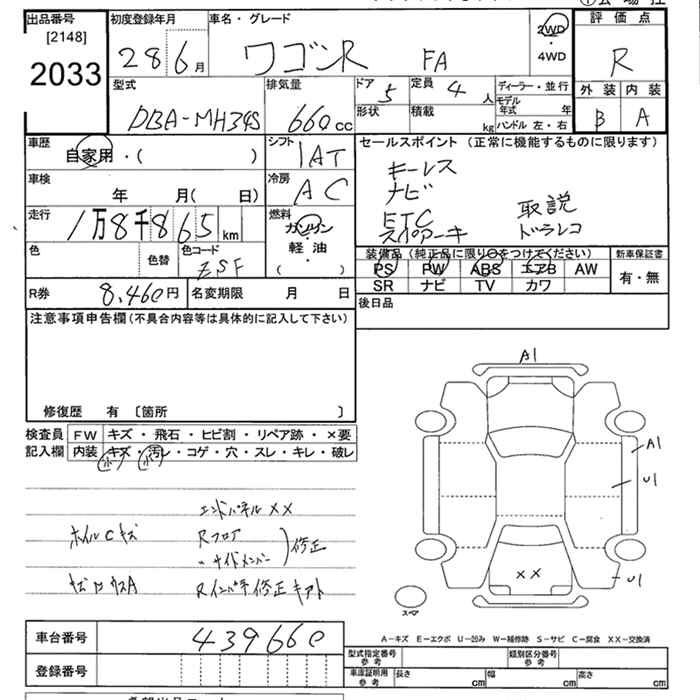 出品番号
[2148]
2033
初度登録年月
28 6月
車名・グレード
ワゴンR FA
2WD
・
4WD
評価点
R
外装 内装
B A
型式
DBA-MH34S
排気量
660cc
ドア 5
形状
定員 4人
積載 kg
ディーラー・並行
モデル年式 年
ハンドル 左・右
車歴
自家用・( )
シフト
IAT
セールスポイント(正常に機能するものに限ります)
キーレス
ナビ
ETC 取説
スペアーキー ドラレコ
車検
年 月( 日)
冷房
AC
走行
1万8千865km
燃料
ガソリン
軽・油
( )
色
色替
色コード
ZSF
装備品(純正品に限り○をつけてください)
PS PW ABS エアB AW
SR ナビ TV カワ
新車保証書
有・無
R券 8,460円
名変期限 月 日
後日品
注意事項申告欄(不具合内容等は具体的に記入して下さい)
修復歴 有 〔箇所 〕
検査員
記入欄
FW キズ・飛石・ヒビ割・リペア跡・×要
内装 キズ・汚レ・コゲ・穴・スレ・キレ・破レ
エンドパネル XX
ホイルCキズ Rフロア
〃サイドメンバー 修正
Rインパネ修正キアト
A1
A1
U1
XX
U1
スペア
A-キズ E-エクボ U-凹み W-補修跡 S-サビ C-腐食 XX-交換済
車台番号 439660
登録番号
型式指定番号
参考
類別区分番号
参考
車庫証明用
参考
長さ cm 幅 cm 高さ cm